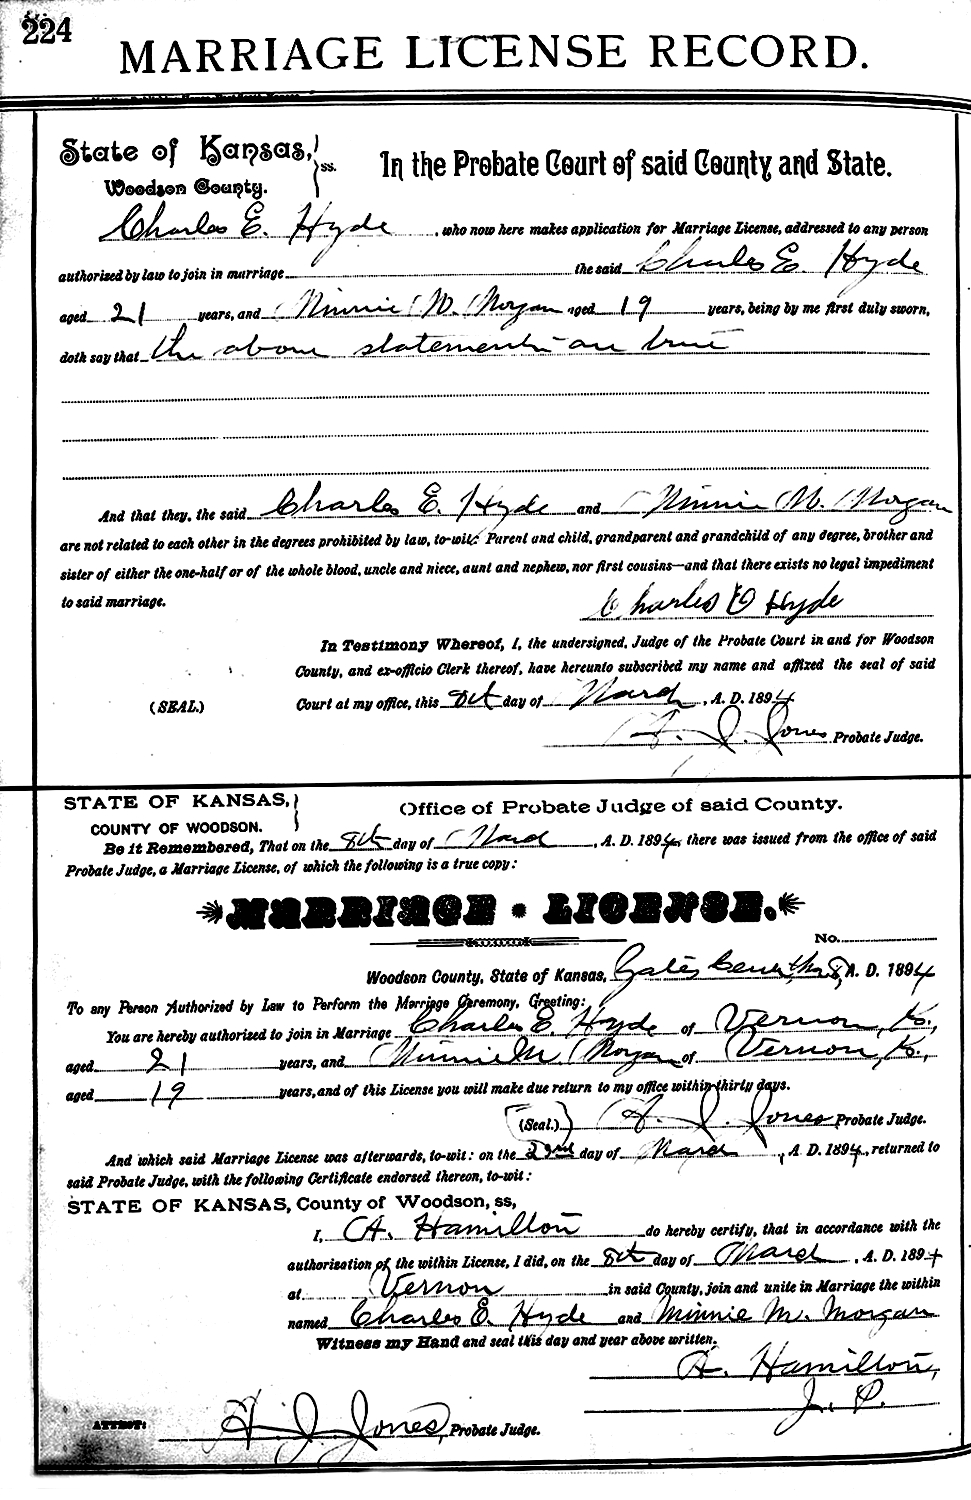 224
MARRIAGE LICENSE RECORD.
State of Kansas, ss. In the Probate Court of said County and State.
Woodson County.
Charles E. Hyde, who now here makes application for Marriage License, addressed to any person
authorized by law to join in marriage the said Charles E. Hyde
aged 21 years, and Minnie M. Morgan aged 19 years, being by me first duly sworn,
doth say that the above statements are true
And that they, the said Charles E. Hyde and Minnie M. Morgan
are not related to each other in the degrees prohibited by law, to-wit: Parent and child, grandparent and grandchild of any degree, brother and
sister of either the one-half or of the whole blood, uncle and niece, aunt and nephew, nor first cousins—and that there exists no legal impediment
to said marriage.
Charles E Hyde
In Testimony Whereof, I, the undersigned, Judge of the Probate Court in and for Woodson
County, and ex-officio Clerk thereof, have hereunto subscribed my name and affixed the seal of said
(SEAL.) Court at my office, this 8th day of March, A. D. 1894
H. J. Jones Probate Judge.
STATE OF KANSAS, Office of Probate Judge of said County.
COUNTY OF WOODSON.
Be it Remembered, That on the 8th day of March, A. D. 1894, there was issued from the office of said
Probate Judge, a Marriage License, of which the following is a true copy:
MARRIAGE LICENSE.
No.
Woodson County, State of Kansas, Yates Center, Mch 8, A. D. 1894
To any Person Authorized by Law to Perform the Marriage Ceremony, Greeting:
You are hereby authorized to join in Marriage Charles E. Hyde of Vernon, Ks.,
aged 21 years, and Minnie M. Morgan of Vernon, Ks.,
aged 19 years, and of this License you will make due return to my office within thirty days.
(Seal.) H. J. Jones Probate Judge.
And which said Marriage License was afterwards, to-wit: on the 23rd day of March, A. D. 1894, returned to
said Probate Judge, with the following Certificate endorsed thereon, to-wit:
STATE OF KANSAS, County of Woodson, ss,
I, A. Hamilton do hereby certify, that in accordance with the
authorization of the within License, I did, on the 8th day of March, A. D. 1894
at Vernon in said County, join and unite in Marriage the within
named Charles E. Hyde and Minnie M. Morgan
Witness my Hand and seal this day and year above written.
A. Hamilton,
J. P.
ATTEST: H. J. Jones, Probate Judge.